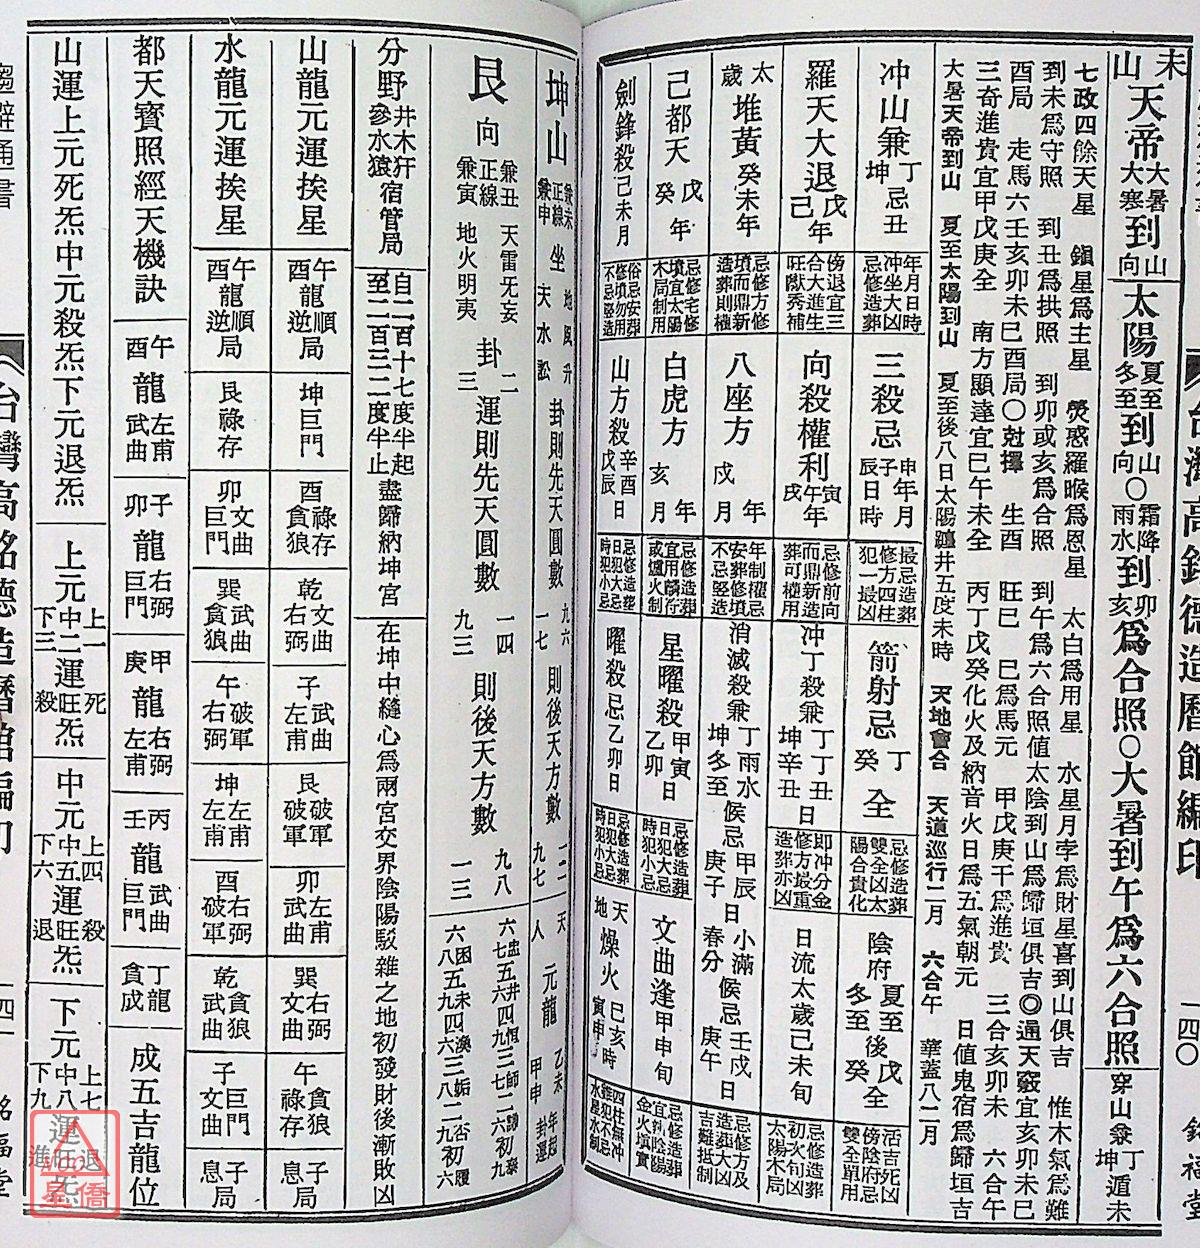 未山天帝大暑大寒到山向
太陽夏至冬至到山向○霜降雨水到卯亥爲合照○大暑到午爲六合照
穿山兼丁坤遁未
七政四餘天星　鎮星爲主星　熒惑羅㬋爲恩星　太白爲用星　水星月孛爲財星喜到山俱吉　惟木氣爲難
到未爲守照　到丑爲拱照　到卯或亥爲合照　到午爲六合照值太陰到山爲歸垣俱吉◎通天竅宜亥卯未巳
酉局　走馬六壬亥卯未巳酉局○尅擇　生酉　旺巳　巳爲馬元　甲戊庚干爲進貴　三合亥卯未　六合午
三奇進貴宜甲戊庚全　南方顯達宜巳午未全　丙丁戊癸化火及納音火日爲五氣朝元　日值鬼宿爲歸垣吉
大暑天帝到山　夏至太陽到山　夏至後八日太陽躔井五度未時　天地會合　天道巡行二月　六合午　華蓋八二月
冲山兼丁坤忌丑
年月日時冲坐大凶忌修造葬
三殺忌申子辰年月日時
最忌造葬修方四柱犯一最凶
箭射忌丁癸全
忌修造葬雙全凶太陽合貴化
陰府夏至冬至後戊癸全
活吉死凶傍陰府忌雙全單用
羅天大退戊己年
傍退宜三合大進生旺獸秀補
向殺權利寅午戌年
忌修前向而鼎新造葬可權用
冲丁殺兼丁坤丁丑辛丑日
即冲分金修方最重造葬亦凶
日流太歲己未旬
忌修造葬初次旬凶太陽木局
太歲堆黃癸未年
忌修方修墳而鼎新造葬則權
八座方戌年月
年制權忌安葬修墳不忌豎造
消滅殺兼丁坤雨水冬至候忌甲辰庚子日
小滿春分候忌壬戍庚午日
忌修方及造葬大凶吉難抵制
己都天戊癸年
忌修宅修墳宜太陽木局制用
白虎方亥年月
忌修造葬宜用麟符或爐火制
星曜殺甲寅乙卯日
忌修造葬日犯大忌時犯小忌
文曲逢甲申旬
忌修造葬宜執陰陽金火填實
劍鋒殺己未月
俗忌安葬修墳勿用不忌豎造
山方殺辛酉戊辰日
忌修造葬日犯大忌時犯小忌
曜殺忌乙卯日
忌修造葬日犯大忌時犯小忌
天地燥火巳亥寅申時
四柱無冲雖犯不忌水星水制
台灣高銘德造曆館編印
一四〇
銘福堂
坤山兼未正線兼申坐地風升天水訟卦則先天圓數九六一七則後天方數一二九七
天人元龍乙未甲申年起卦運
艮向兼丑正線兼寅天雷无妄地火明夷卦二三運則先天圓數一四九三則後天方數九八一三
分野井木犴參水猿宿管局
自二百十七度半起至二百三二度半止盡歸納坤宮
在坤中縫心爲兩宮交界陰陽駁雜之地初發財後漸敗凶
山龍元運挨星
午酉龍順逆局
坤巨門
酉祿存貪狼
乾文曲右弼
子武曲左甫
艮破軍破軍
卯左甫武曲
巽右弼文曲
午貪狼祿存
子息局
水龍元運挨星
午酉龍順逆局
艮祿存
卯文曲巨門
巽武曲貪狼
午破軍右弼
坤左甫左甫
酉右弼破軍
乾貪狼武曲
子巨門文曲
子息局
都天寶照經天機訣
午酉龍左甫武曲
卯子龍右弼巨門
庚甲龍右弼左甫
壬丙龍武曲巨門
丁龍貪成
成五吉龍位
山運上元死炁中元殺炁下元退炁
上元上一中二下三運死旺殺炁
中元上四中五下六運殺旺退炁
下元上七中八下九運退旺進炁
趨避通書
台灣高銘德造曆館編印
一四一
銘福堂
星僑